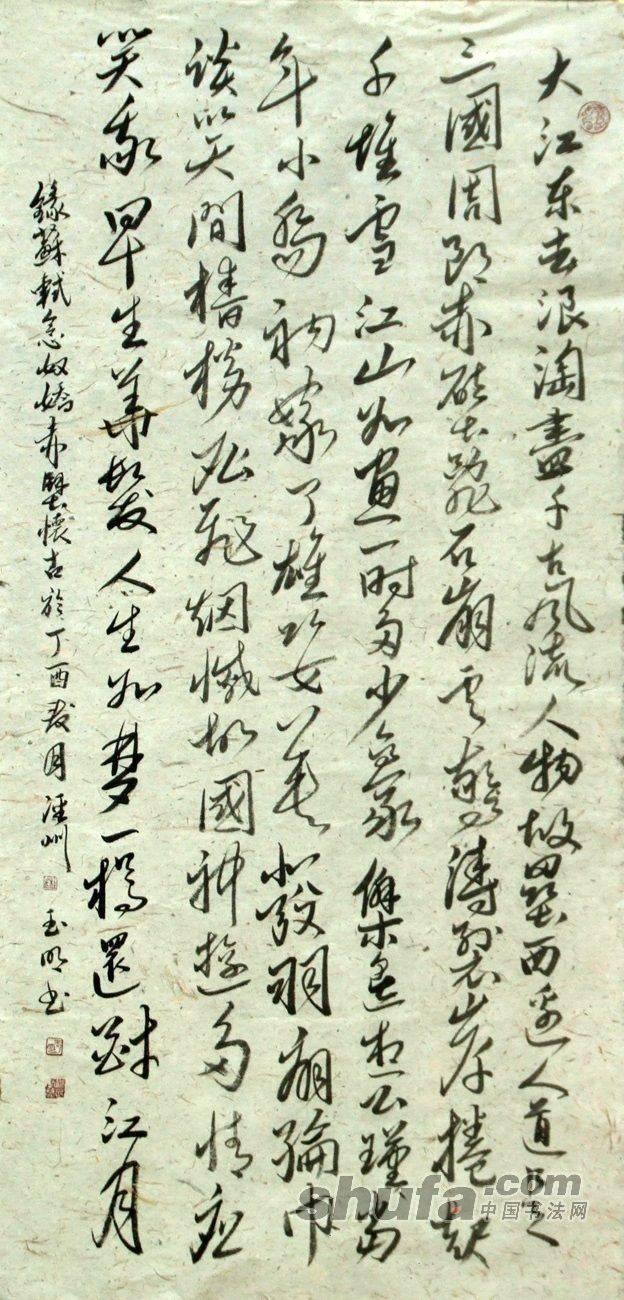 大江东去浪淘盡千古风流人物故壘西邊人道是
三國周郎赤壁乱石崩云驚濤裂岸捲起
千堆雪江山如画一时多少豪傑遥想公瑾当
年小喬初嫁了雄姿英發羽扇綸巾
談笑間檣櫓灰飛烟滅故國神遊多情应
笑我早生華髮人生如梦一樽還酹江月
錄蘇軾念奴嬌赤壁懷古於丁酉月涇州 玉明书
shufa.com
中国书法网